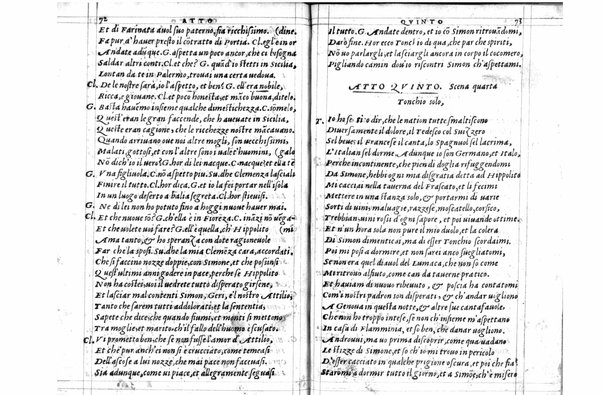 72 ATTO
Et di Farinata auol suo paterno, sia ricchissimo. (dine.
Fa pur d'hauer presto il cōtratto di Portia. Cl. egl'è in or
Andate adūque. G. aspetta un poco anchora, mi bisogna
Saldar altri conti. Cl. et che? G. quād'io stetti in Sicilia,
Lontan da te in Palermo, trouai una certa uedoua.
Cl. De le nostre sarà, io l'aspetto, et ben? G. ell'era nobile,
Ricca, e giouane. Cl. et poco honesta et māco buona, ditelo.
G. Basta hauēmo insieme qualche dimestichezza. C. siōmelo,
Quest'eran le gran faccende, che haueuate in Sicilia,
Quest'eran cagione, che le ricchezze nostre mācauano.
Quando arriuano ouè noi altre mogli, son uecchissimi,
Malati, gottosi, et con l'altre sono i ualēt'huomini,
Nō dich'io il uero? G. hor di lei nacque. C. nacque et ella tē
G. Vna figliuola. C. nō aspetto piu. Su dhe Clemenza lasciali
Finire il tutto. Cl. hor dica. G. et io la fei portar nell'isola
In un luogo deserto a balia segreta. Cl. hor finiscasi.
G. Ne di lei non ho potuto fino a hoggi nuoue hauer mai.
Cl. Et che nuoue son? G. ch'ella è in Fioreza. C.ināzi nō uega-
Et che uolete uoi fare? G. ell'è quella, ch' Hippolito (mi
Ama tanto, & ho speranza con dote ragioneuole
Far che la sposi. Su dhe la mia Clemēza cara, accordati.
Che si faccino nozze doppie, con Simone, et che possinsi
Quest'ultimi anni godere in pace, perche se Hippolito
Non ha costei, uoi il uedrete tutto disperato girsene,
Et lasciar mal contenti Simon, Geri, e'l nostro Attilio,
Tanto che sarem tutti addolorati, et la sententia,
Sapete che dice, che quando fiumi, et manti si mettono
Tra moglie, et marito, ch'il fallo dell'huomo è scusato.
Cl. Vi prometto ben, che se non fusse l'amor d'Attilio,
Et che pur anch'ei non si è crucciato, come temeasi
Dell'ascose a lui nozze, che mai pace non facciasi.
Sia adunque, come ui piace, et allegramente seguasi
QVINTO 73
Il tutto. G. Andate dentro, et io cō Simon ritrouādomi,
Darò fine. Hor ecco Tonci io di qua, che par che spiriti,
Nō uo parlargli, et ho desinari ancora in corpo il comero,
Pigliando camin dou'io riscontri Simon ch'aspettami.
ATTO QVINTO. Scena quarta
Tonchio solo,
T. Io ho sētito dir, che le nation tutte smaltiscono
Diuersamente il dolore, il Tedesco col Suizzero
Sel beue: il Francese il canta, lo Spagnuol sel lacrima,
L'Italian sel dorme. Adunque io son Germano, et Italo,
Perche incontinente, che pien di doglia rifuggitomi
Da Simone, hebbi ogni mia disgratia detta ad Hippolito
Mi cacciai nella tauerna del Frascato, et li fecimi
Mettere in una stanza solo, & portarmi di uarie
Sorti di uini: maluagie, razzese, moscatello, corsico,
Trebbian, uini rossi d'ogni sapore, et poi uiuande ottime.
Et n'un hora solo non pure il mio duolo, et la colera
Di Simon dimenticai, ma di esser Tonchio scordaimi.
Poi mi posi a dormire, et non sarei anco suegliatomi,
Se non era quel diauol del Lumaca, che non sò come
Mi ritrouò al fiuto, come can da tauerne pratico.
Et hauiam di nuouo ribeuuto, & poscia ha contatomi
Com'i nostri padron son disperati, & ch'andar uogliono
A Genoua in questa notte, & altre sue cantafauole
Che non ho troppo inteso, se non ch'insieme m'aspettano
In casa di Flamminia, et so ben, che danar uogliono.
Androuui, ma uo prima discoprir, come quaruata
Le stizze di Simone, se sō ch'o mi trouo in pericolo
D'esser cacciato in qualche prigione oscura, et poi che sia
Starommi a dormir tutto il giorno, et a Simone, ch'è misero